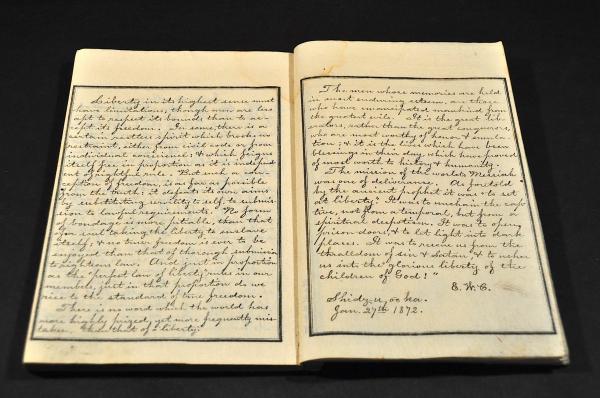 Liberty in its highest sense must
have limitations, though men are less
apt to respect its bounds than to ac-
cept its freedom. In some, there is a
certain restless spirit which brooks no
restraint, either from civil code or from
individual conscience; & which feigns
itself free in proportion as it is independ-
ent of rightful rule. But such a con-
ception of freedom, is as far as possible
from the truth; it defeats its own aims
by substituting servility to self, to submis-
sion to lawful requirements. No form
of bondage is more pitiable, than that
of sin taking the liberty to enslave
itself; & no truer freedom is ever to be
enjoyed than that of thorough submission
to righteous law. And just in proportion
as the "perfect law of liberty" rules in our
members, just in that proportion do we
rise to the standard of true freedom.
There is no word which the world has
more highly prized, yet more frequently mis-
taken, than that of "liberty."
The men whose memories are held
in most enduring esteem, are those
who have emancipated mankind from
the greatest evils. It is the great lib-
erators, rather than the great conquerors,
who are most worthy of honor & emula-
tion; & it is the lives which have been
blessings in their day, which have proved
of most worth to history & humanity.
The mission of the world's Messiah
was one of deliverance. As foretold
by the ancient prophet it was "to set
at liberty." It was to unchain the cap-
tive, not from a temporal, but from a
spiritual despotism. It was to open
prison doors, & to let light into dark
places. It was to rescue us from the
thraldom of sin & Satan, & to usher
us into the "glorious liberty of the
children of God!"
E. W. C.
Shidz-u-o-ka.
Jan. 27th 1872.